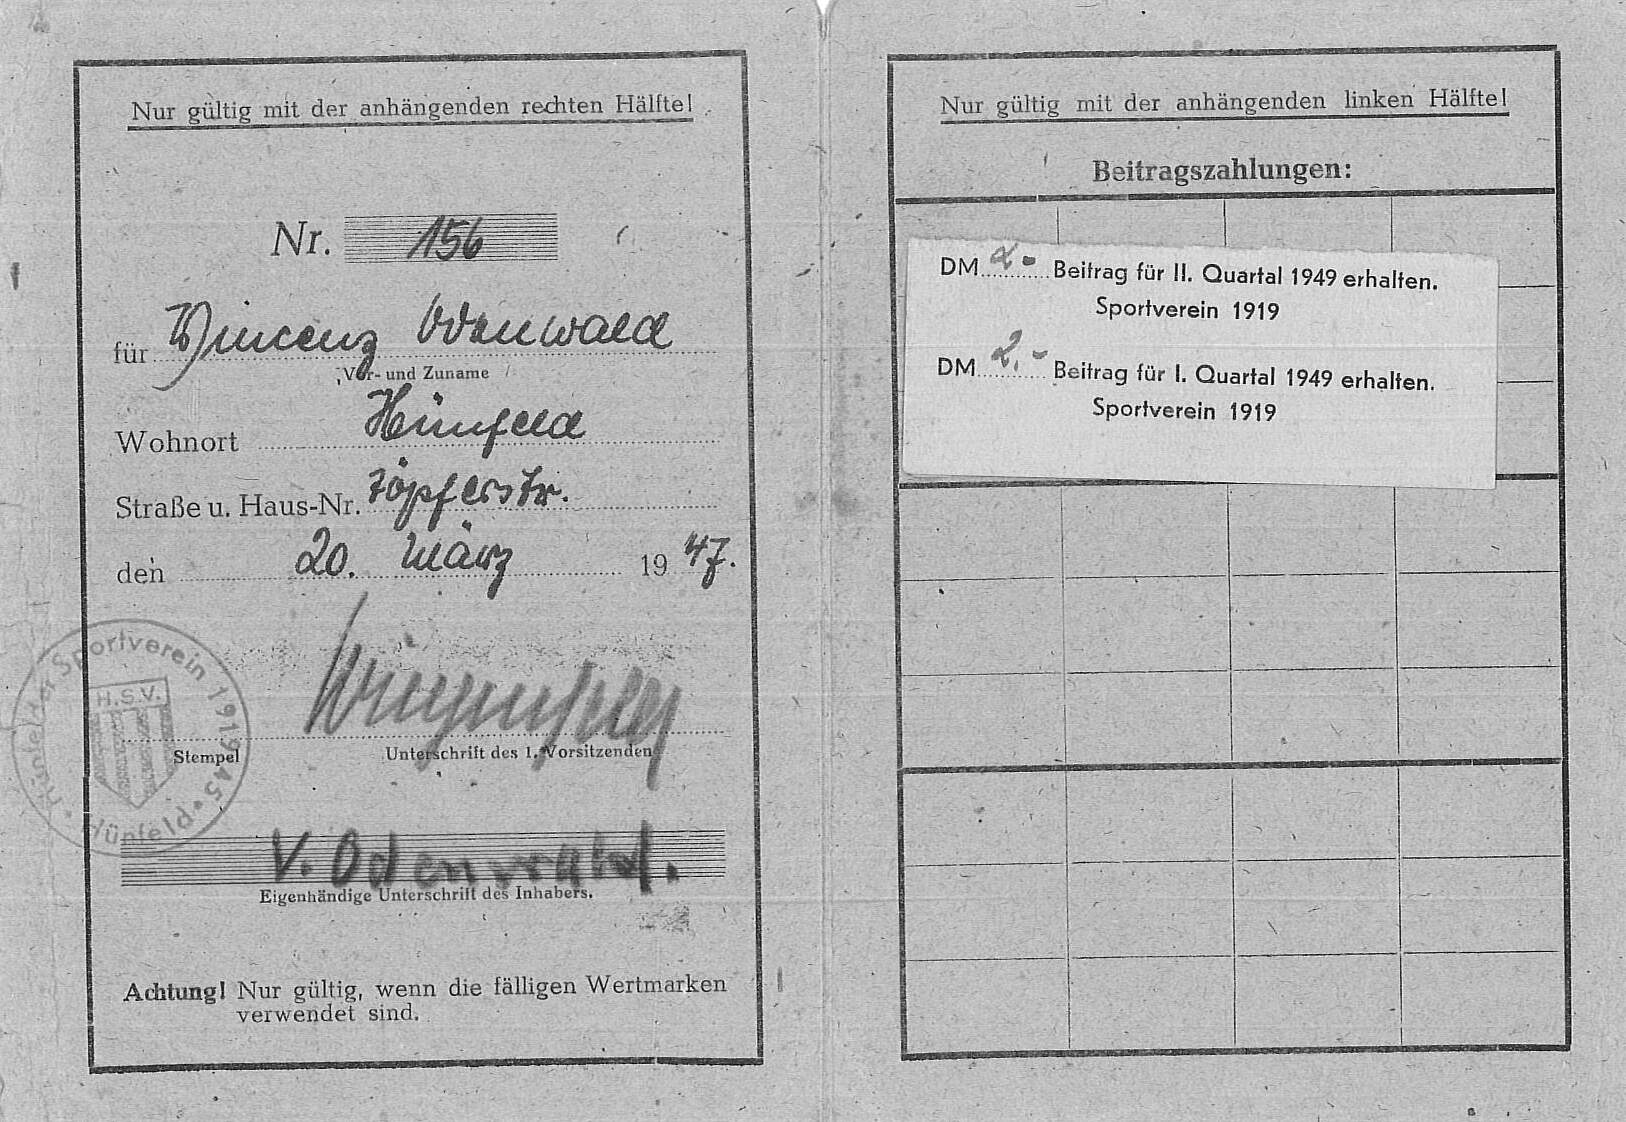 Nur gültig mit der anhängenden rechten Hälfte!
Nr. 156
für Vincenz Odenwald
Vor- und Zuname
Wohnort Hünfeld
Straße u. Haus-Nr. Töpferstr.
den 20. März 1947.
Hünfelder Sportverein 1919/45 • Hünfeld •
H.S.V.
Stempel
Unterschrift des 1. Vorsitzenden
V. Odenwald.
Eigenhändige Unterschrift des Inhabers.
Achtung! Nur gültig, wenn die fälligen Wertmarken
verwendet sind.
Nur gültig mit der anhängenden linken Hälfte!
Beitragszahlungen:
DM 2.- Beitrag für II. Quartal 1949 erhalten.
Sportverein 1919
DM 2.- Beitrag für I. Quartal 1949 erhalten.
Sportverein 1919